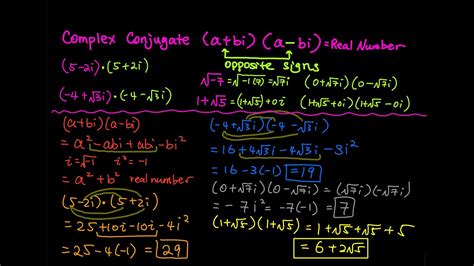 Complex Conjugate (a+bi)(a-bi)=Real Number
opposite signs
(5-2i)·(5+2i)
√-7 = √-1(7) = √7i (0+√7i)(0-√7i)
(-4+√3i)·(-4-√3i)
1+√5 = (1+√5)+0i (1+√5+0i)(1+√5-0i)
(a+bi)(a-bi)
= a²-abi+abi-bi²
i=√-1 i²=-1
= a²+b² real number
(5-2i)·(5+2i)
=25+10i-10i-4i²
=25-4(-1)=29
(-4+√3i)(-4-√3i)
=16+4√3i-4√3i-3i²
=16-3(-1)=19
(0+√7i)(0-√7i)=
=-7i²=-7(-1)=7
(1+√5)(1+√5)=1+√5+√5+5
=6+2√5